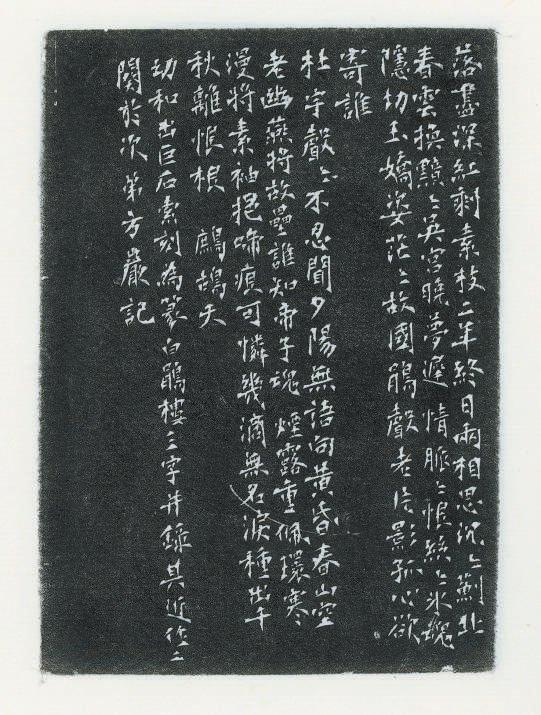 落盡深紅剩素枝二年終日兩相思沉〻薊北
春雲換黯〻吳宮曉夢遲 情脈〻恨絲〻冰魂
隱切玉嬌姿茫〻故國鵑聲老片影孤心欲
寄誰
杜宇聲〻不忍聞夕陽無語向黃昏春山空
老幽燕將故壘誰知帝子魂 煙露重佩環寒
漫將素袖挹啼痕可憐幾滴無名淚種出千
秋離恨根 鷓鴣天
幼和出巨石索刻為篆白鵑樓三字并錄其近作二
闋於次第方巖記